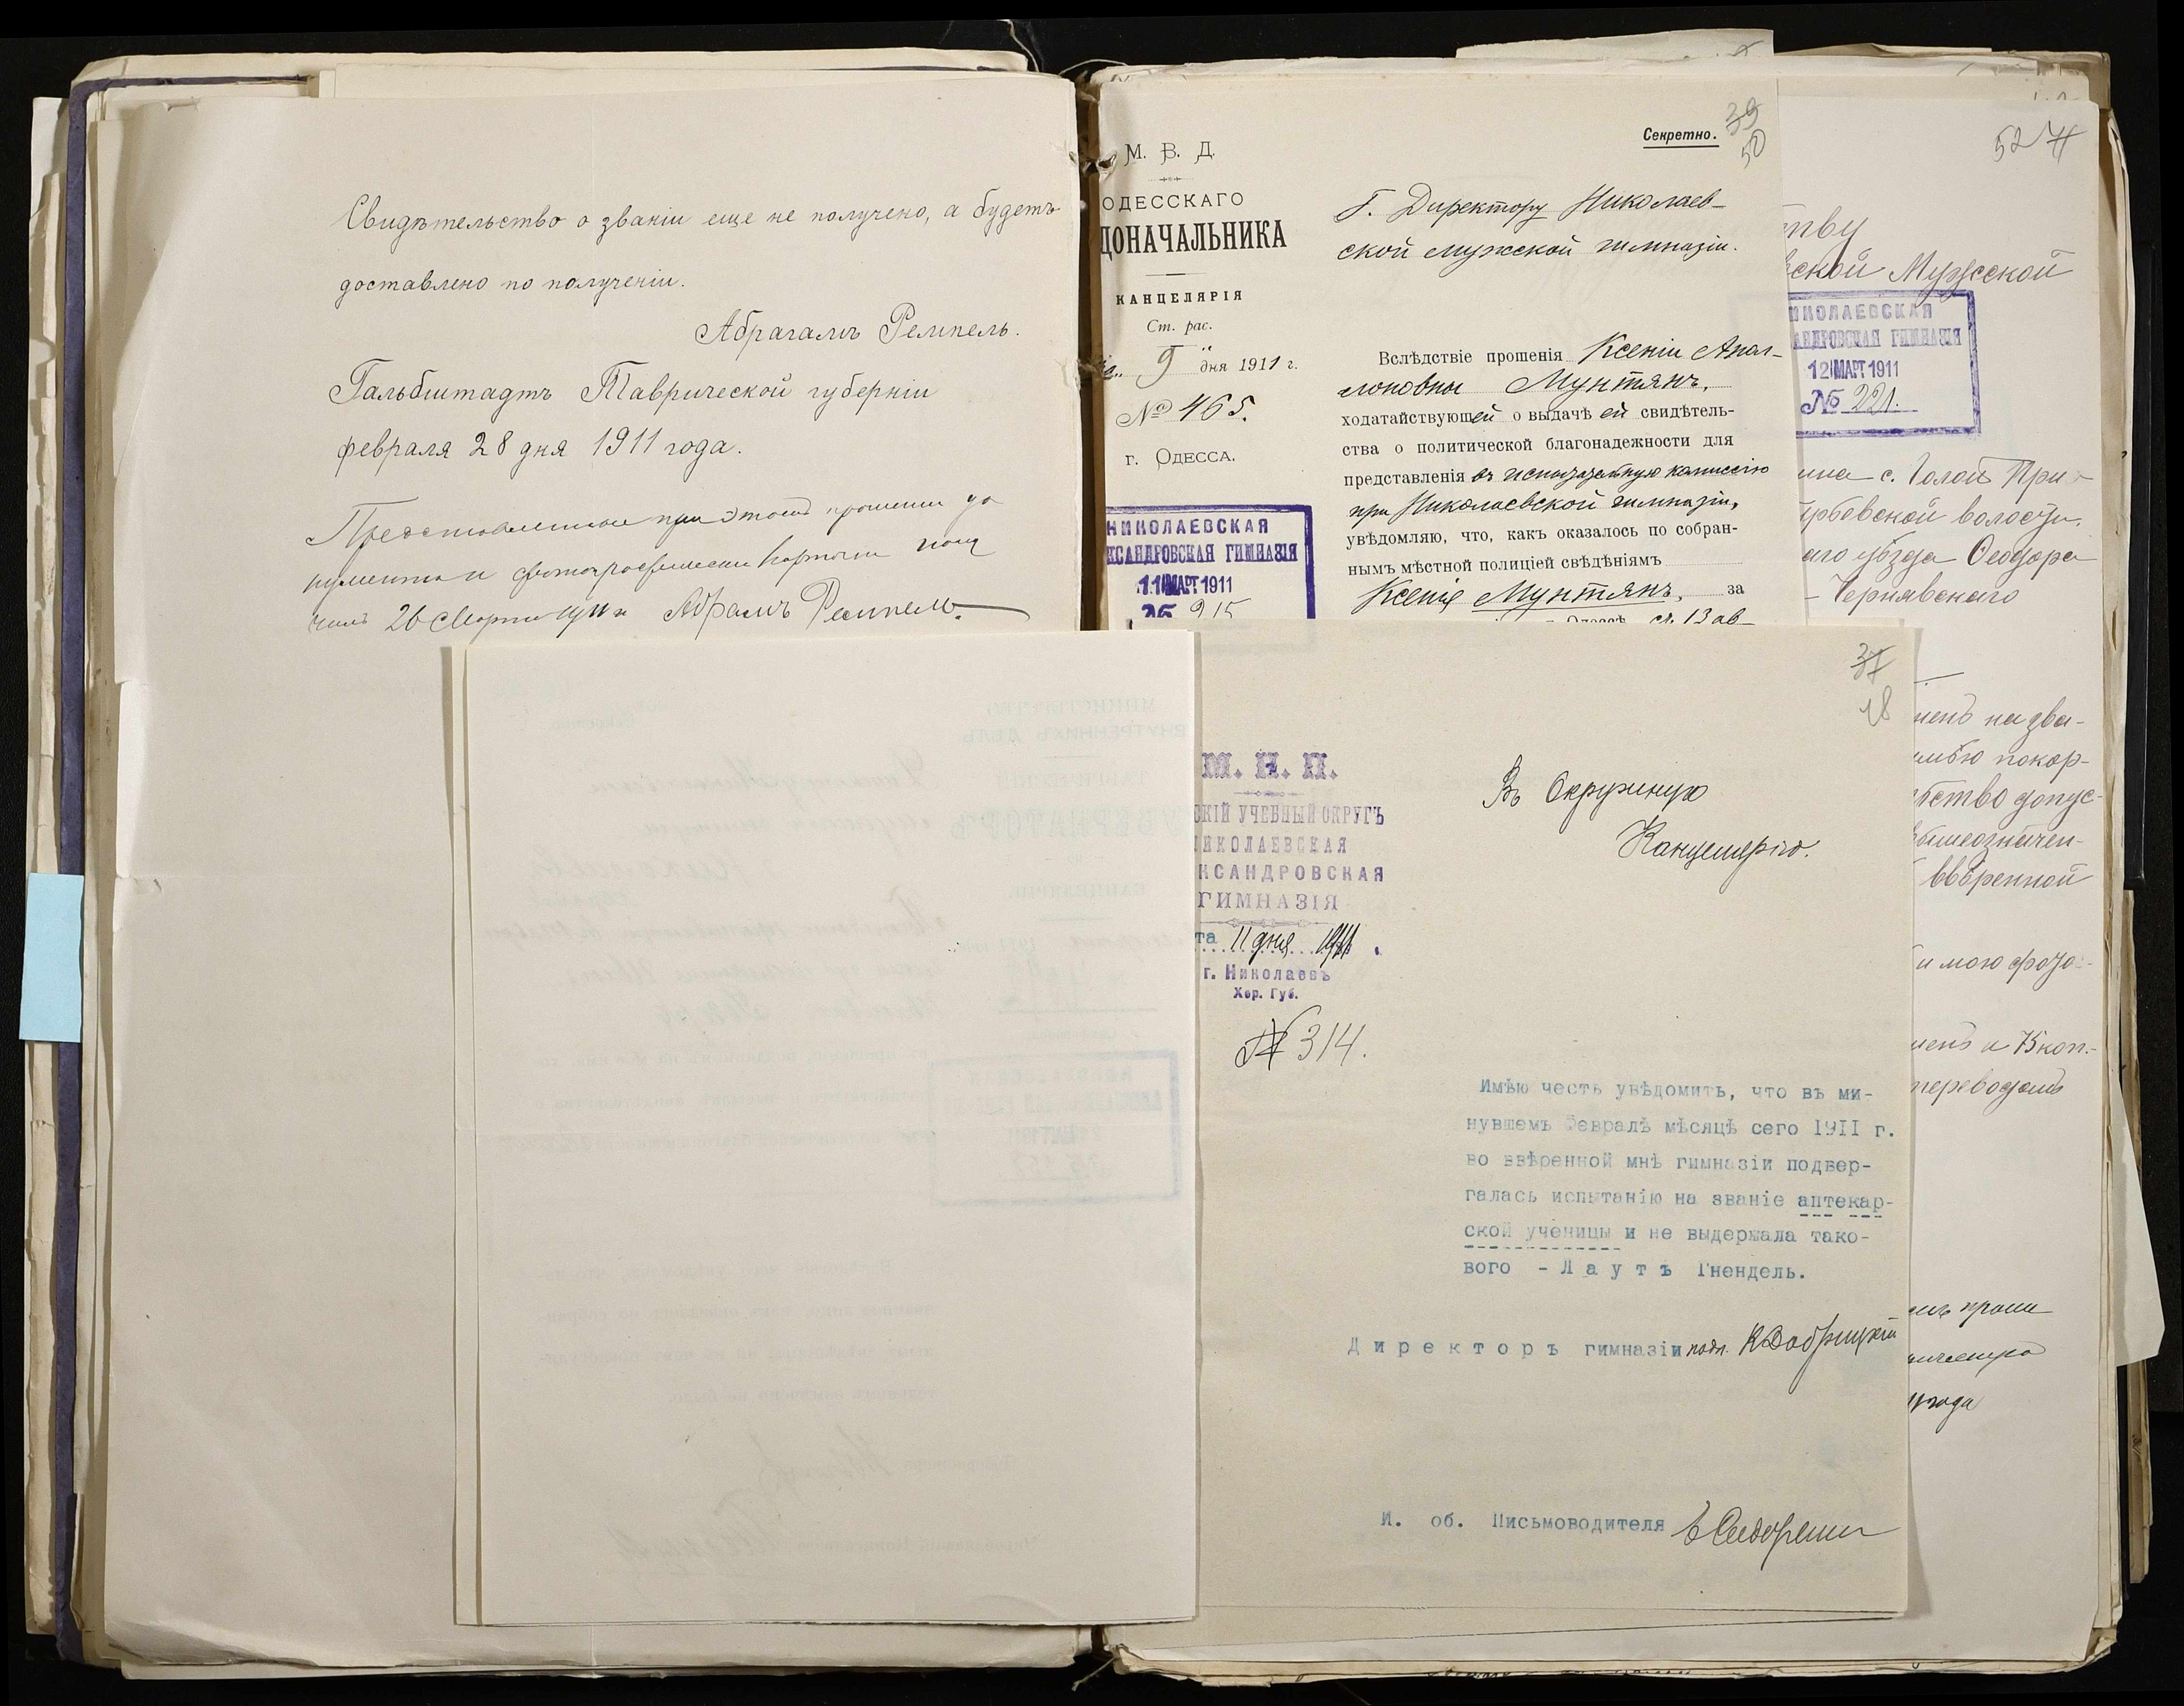 Свидѣтельство о званіи еще не получено, а будетъ
доставлено по полученіи.
Абрагамъ Ремпель.
Гальбштадтъ Таврической губерніи
февраля 28 дня 1911 года.
Представленные при этомъ прошеніи до
кументы и фотографическія карточки полу
чилъ 26 Марта 1911 г. Абрамъ Ремпель.
Секретно.
39
50
М. В. Д.
ОДЕССКАГО
ДОНАЧАЛЬНИКА
КАНЦЕЛЯРІЯ
Ст. рас.
9 дня 1911 г.
№ 465.
г. ОДЕССА.
НИКОЛАЕВСКАЯ
КСАНДРОВСКАЯ ГИМНАЗІЯ
11 МАРТ 1911
№ 215
Г. Директору Николаев-
ской мужской гимназіи.
Вслѣдствіе прошенія Ксеніи Апол-
лоновны Мунтянъ,
ходатайствующей о выдачѣ ей свидѣтель-
ства о политической благонадежности для
представленія въ испытательную комиссію
при Николаевской гимназіи,
увѣдомляю, что, какъ оказалось по собран-
нымъ мѣстной полиціей свѣдѣніямъ
Ксенія Мунтянъ, за
г. Одессѣ съ 13 ав-
52
ству
вской Мужской
НИКОЛАЕВСКАЯ
АНДРОВСКАЯ ГИМНАЗІЯ
12 МАРТ 1911
№ 221.
ина с. Голой При
рбевской волости,
аго уѣзда Ѳеодора
Чернявскаго
менъ на зва-
покор-
ьство допус-
вышеозначен-
ввѣренной
и мою фото-
менъ и 75 коп.
переводомъ
проше
года
37
48
М. Н. П.
СКІЙ УЧЕБНЫЙ ОКРУГЪ
НИКОЛАЕВСКАЯ
КСАНДРОВСКАЯ
ГИМНАЗІЯ
та 11 дня 1911
г. Николаевъ
Хер. Губ.
№ 314.
Въ Окружную
Канцелярію.
Имѣю честь увѣдомить, что въ ми-
нувшемъ Февралѣ мѣсяцѣ сего 1911 г.
во ввѣренной мнѣ гимназіи подвер-
галась испытанію на званіе аптекар-
ской ученицы и не выдержала тако-
вого - Лаутъ Гнендель.
Директоръ гимназіи подп. К Добрицкій
И. об. Письмоводителя